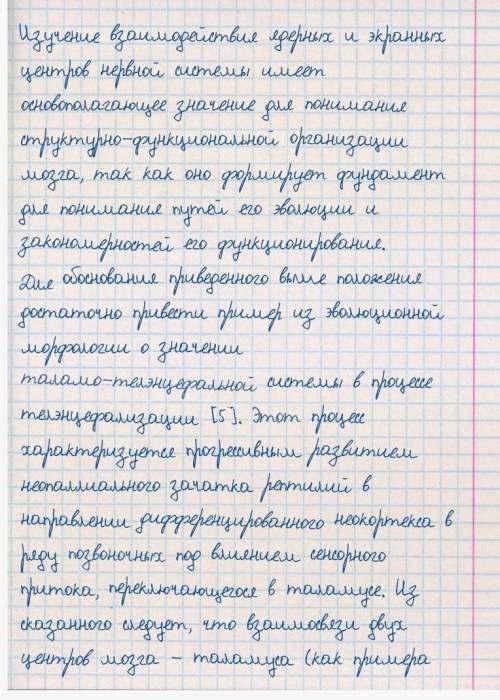 Изучение взаимодействия ядерных и экранных
центров нервной системы имеет
основополагающее значение для понимания
структурно-функциональной организации
мозга, так как оно формирует фундамент
для понимания путей его эволюции и
закономерностей его функционирования.
Для обоснования приведенного выше положения
достаточно привести пример из эволюционной
морфологии о значении
таламо-телэнцефальной системы в процессе
телэнцефализации [5]. Этот процесс
характеризуется прогрессивным развитием
неопаллиального зачатка рептилий в
направлении дифференцированного неокортекса в
ряду позвоночных под влиянием сенсорного
притока, переключающегося в таламусе. Из
сказанного следует, что взаимосвязи двух
центров мозга – таламуса (как примера